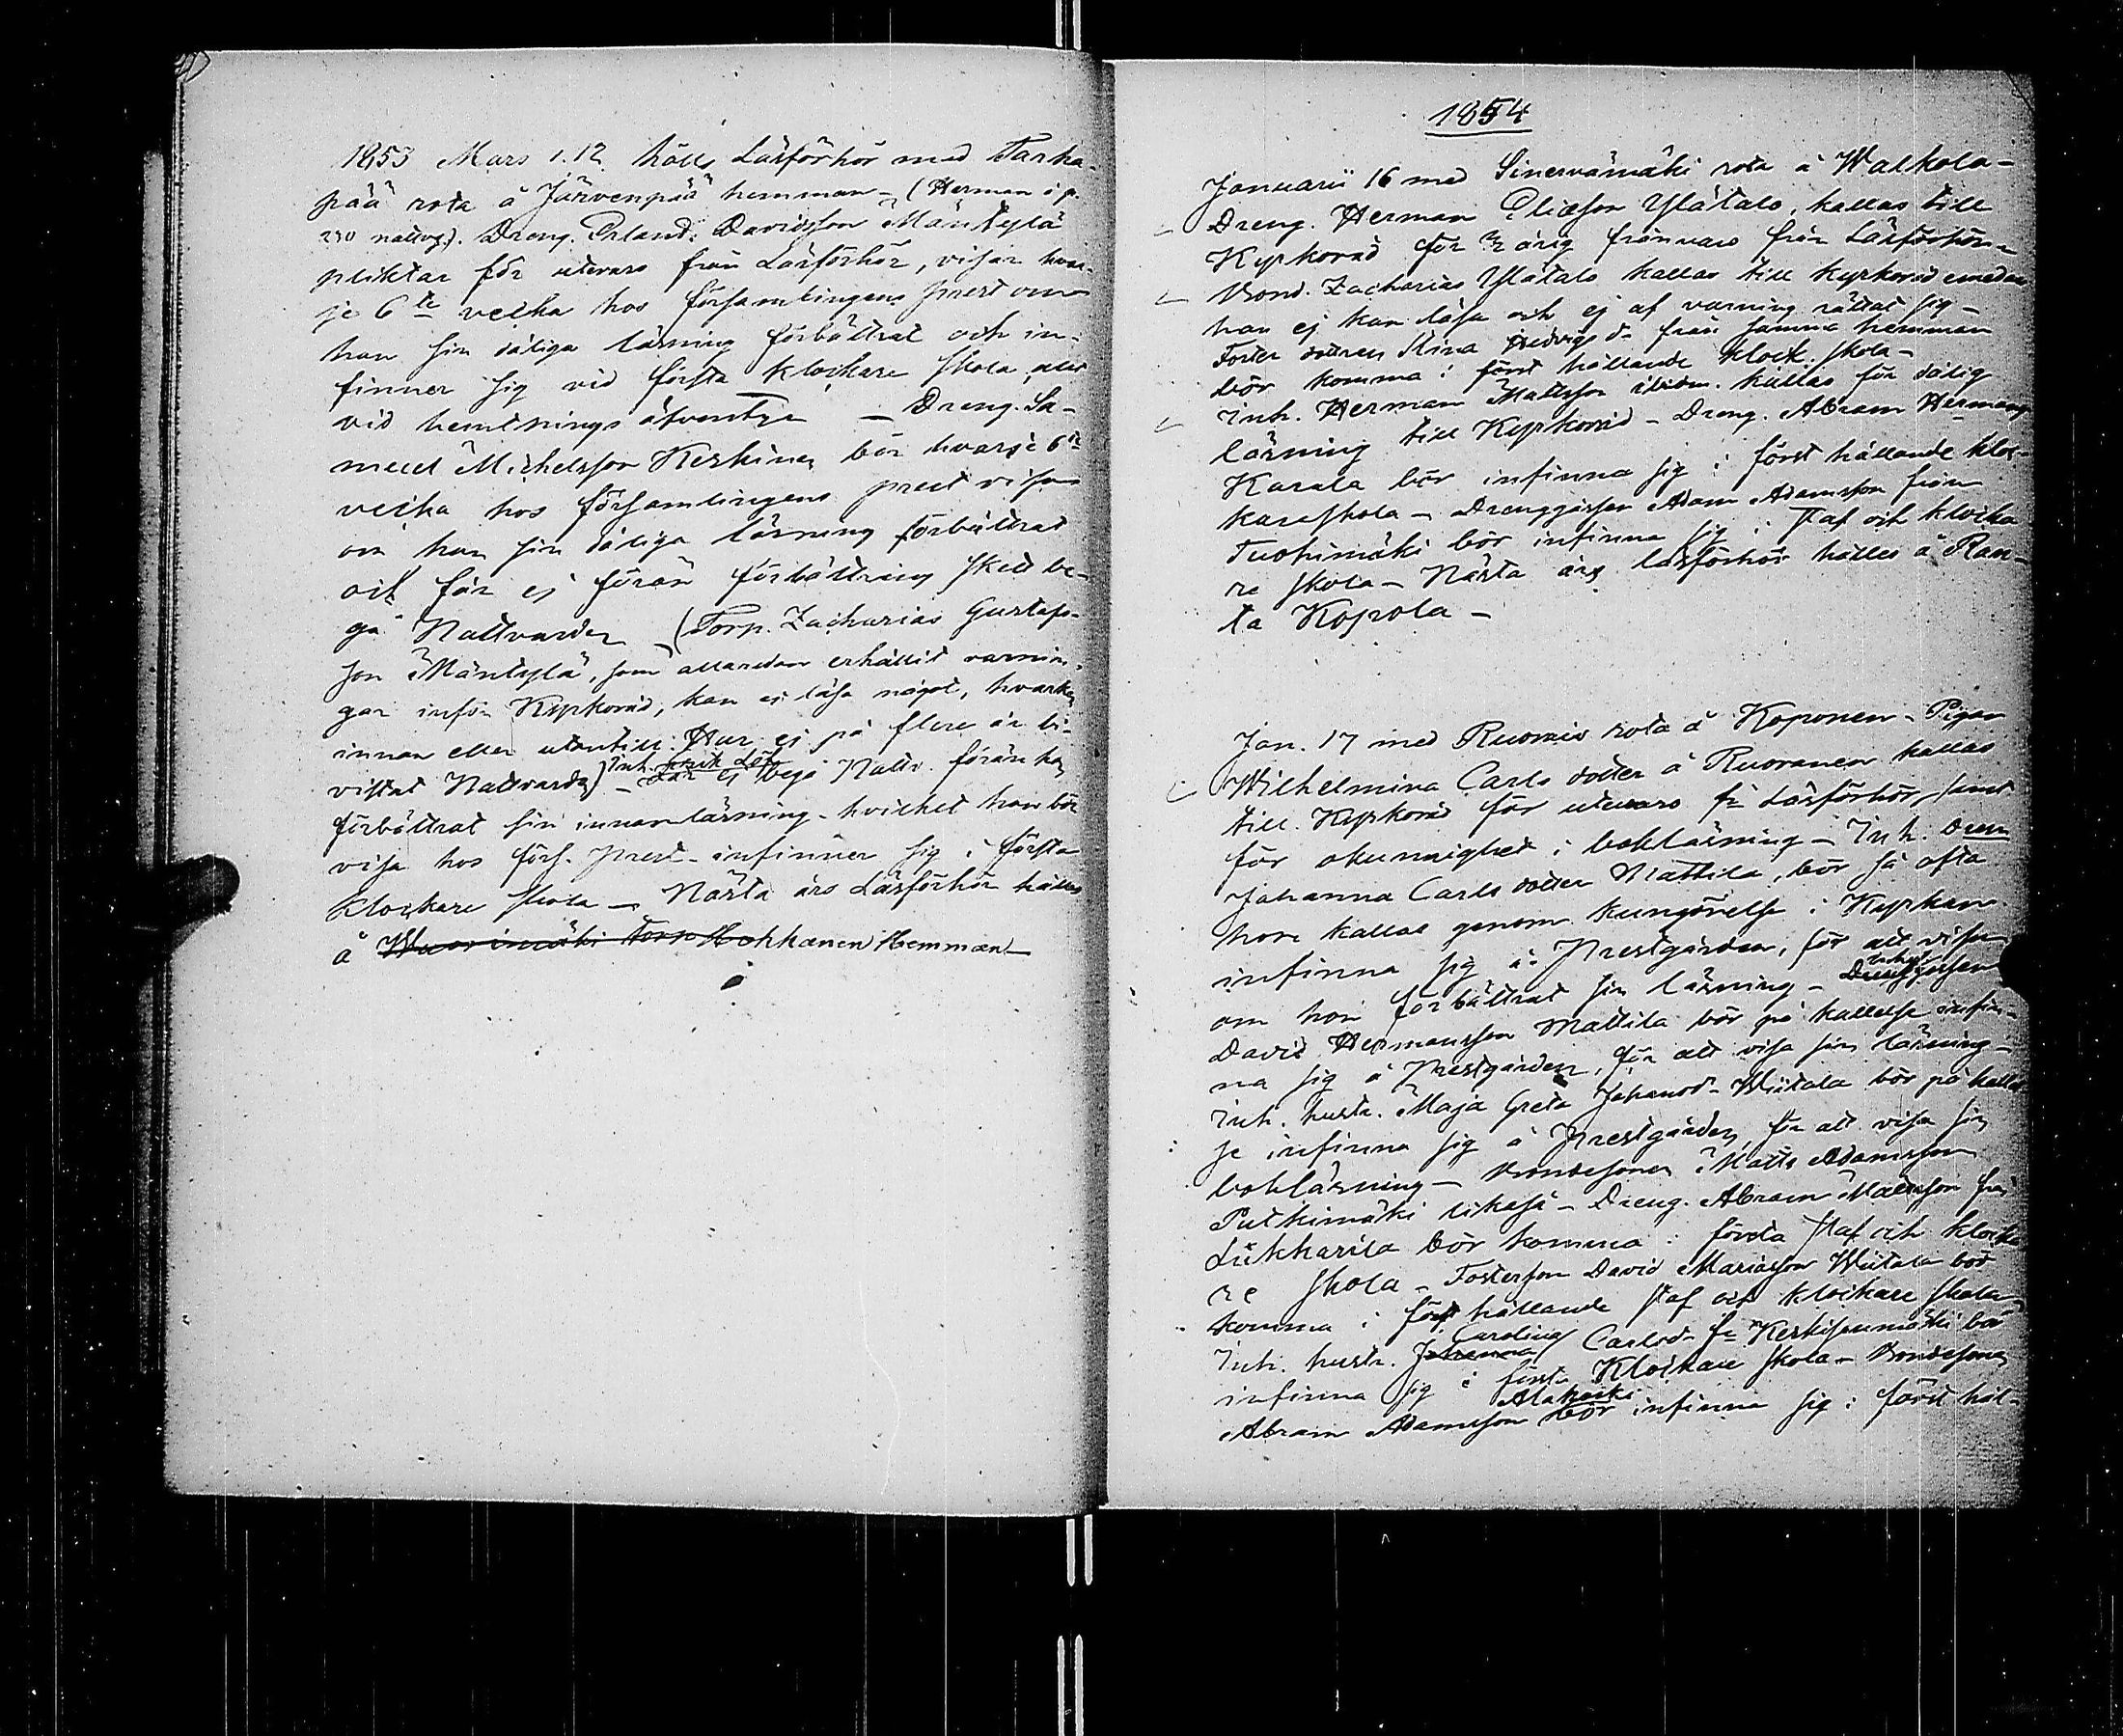 1853 Mars 1.12 hölls Läsförhör med Tarha-
pää rota å Järvenpää hemman – (Herman i p.
230 nattvg). Dreng. Erland Davidsson Mäntylä
pliktar för utevaro från Läsförhör, visar hvar-
je 6te vecka hos församlingens prest om
han sin dåliga läsning förbättrat och in-
finner sig vid första klockare skola, allt
vid hemtnings äfventyr – Dreng. Sa-
muel Michelsson Keskinen bör hvarje 6te
vecka hos församlingens prest visa
om han sin dåliga läsning förbättrat
och får ej förän förbättring skett be-
gå Nattvarden – (Torp. Zacharias Gustafs-
son Mäntylä, som allaredan erhållit varnin-
gar inför Kyrkoråd, kan ej läsa något, hvarken
innan eller utantill. Har ej på flere år bi-
vistat Nattvarden) – Inh. Får ej begå Nattv. förän han
förbättrat sin innanläsning – hvilket han bör
visa hos förs. prest – infinner sig i första
klockare skola – Nästa års Läsförhör hålles
å Wuorimäki torp Hokkanen Hemman –
1854
Januarii 16 med Sinervämäki rota å Walkola –
Dreng. Herman Eliasson Ylätalo, kallas till
Kyrkoråd för årig frånvaro från Läsförhör –
Bond. Zacharias Ylätalo kallas till kyrkoråd emedan
han ej kan läsa och ej af varning rättat sig –
Foster dottren Stina Hedvigsd. från samma hemman
bör komma i först hållande klock. skola –
Inh. Herman Mattsson ibidm. kallas för dålig
läsning till Kyrkoråd – Dreng. Abram Hermans.
Karala bör infinna sig i först hållande kloc-
kareskola – Drenggåssen Adam Adamsson från
Tuohimäki bör infinna sig i staf och klocka-
re skola – Nästa års läsförhör hålles å Ran-
ta Kopola –
Jan. 17 med Ruona rota å Koponen – Pigan
Wilhelmina Carls dotter å Ruoranen kallas
till Kyrkoråd för utevaro fr Läsförhör, samt
för okunnighet i bokläsning – Inh.
Johanna Carls dotter Mattila, bör så ofta
hon kallas genom kungörelse i Kyrkan
infinna sig å Prestgården, för att visa
om hon förbättrat sin läsning – Drenggåssen
David Hermansson Mattila bör på kallelse infin-
na sig å Prestgården, för att visa sin läsning –
Inh. hustr. Maja Greta Johansd. Wiitala bör på kallel-
se infinna sig å Prestgården, för att visa sin
bokläsning – Bondesonen Matts Adamsson
Putkimäki likaså – Dreng. Abram Mattsson från
Liikkarila bör komma i första staf och klocka
re skola – Fosterson David Mariasson Wiitala bör
komma i först hållande staf och klockare skola –
Inh. hustr. Johanna Carolina Carlsd. fr. Keskisenmäki bör
infinna sig i första Klockare skola – Bondesonen
Abram Adamsson Alakoski bör infinna sig i först hål-